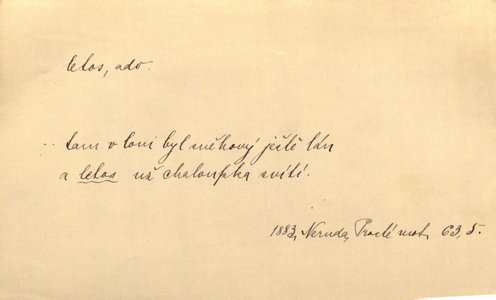 letos, adv.
.. tam v loni byl měkový ještě lán
a letos už chaloupka svítí.
1883, Neruda, Prosté mot. 63, 5.